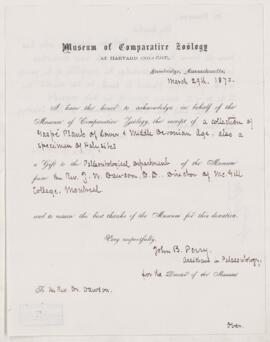 Museum of Comparative Zoölogy
AT HARVARD COLLEGE,
Cambridge, Massachusetts,
March 29th, 1872.
I have the honor to acknowledge in behalf of the
Museum of Comparative Zoölogy, the receipt of a collection of
Gaspé Plants of Lower & Middle Devonian Age, also a
specimen of Halysites
a Gift to the Palaeontological Department of the Museum
from the Rev. J. W. Dawson, D.D., Director of McGill
College, Montreal
and to return the best thanks of the Museum for this donation.
Very respectfully,
John B. Perry,
Assistant in Palaeontology,
for the Director of the Museum
To the Rev. Dr. Dawson.
Over.